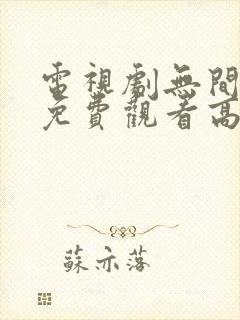 電視劇無間
免費觀看高
蘇亦落